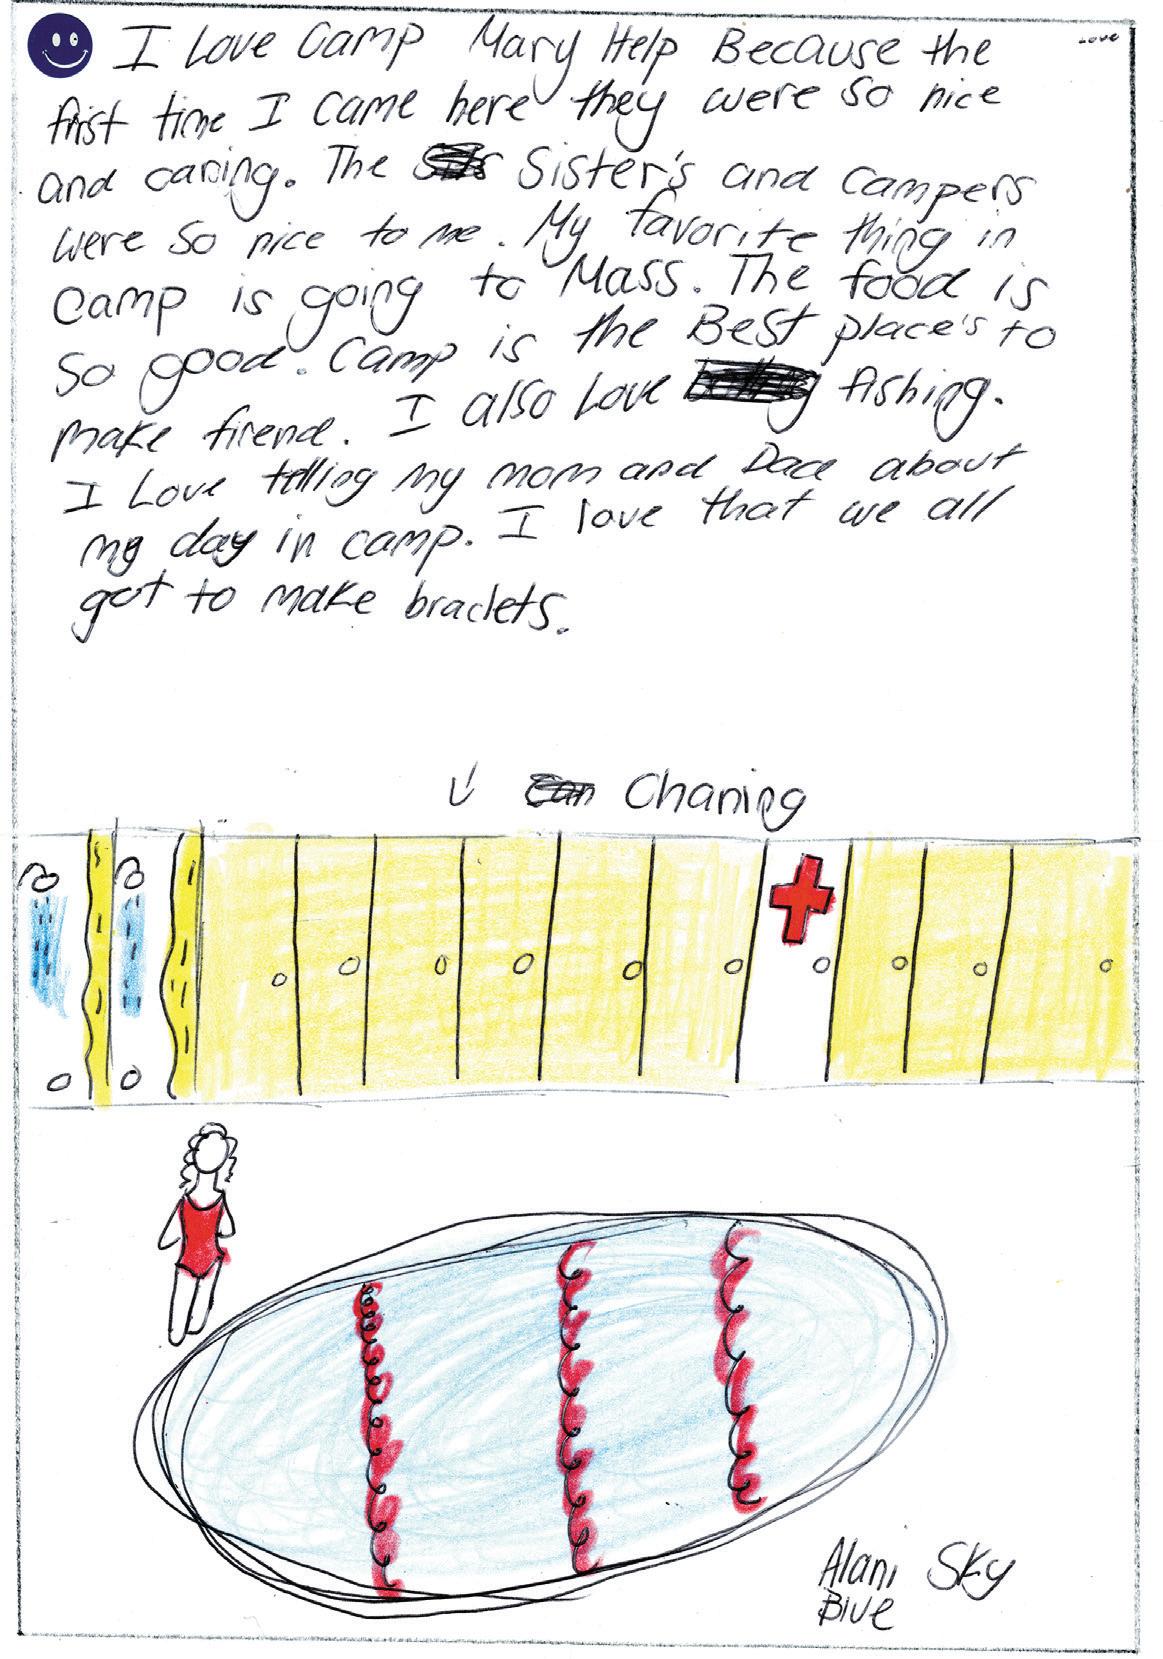 I Love Camp Mary Help Because the
Love
first time I came here they were so nice
and caring. The Sister's and campers
were so nice to me. My favorite thing in
camp is going to Mass. The food is
so good. Camp is the Best place's to
make firend. I also Love fishing.
I Love telling my mom and Dad about
my day in camp. I love that we all
got to make braclets.
Chaning
Alani Sky
Blue